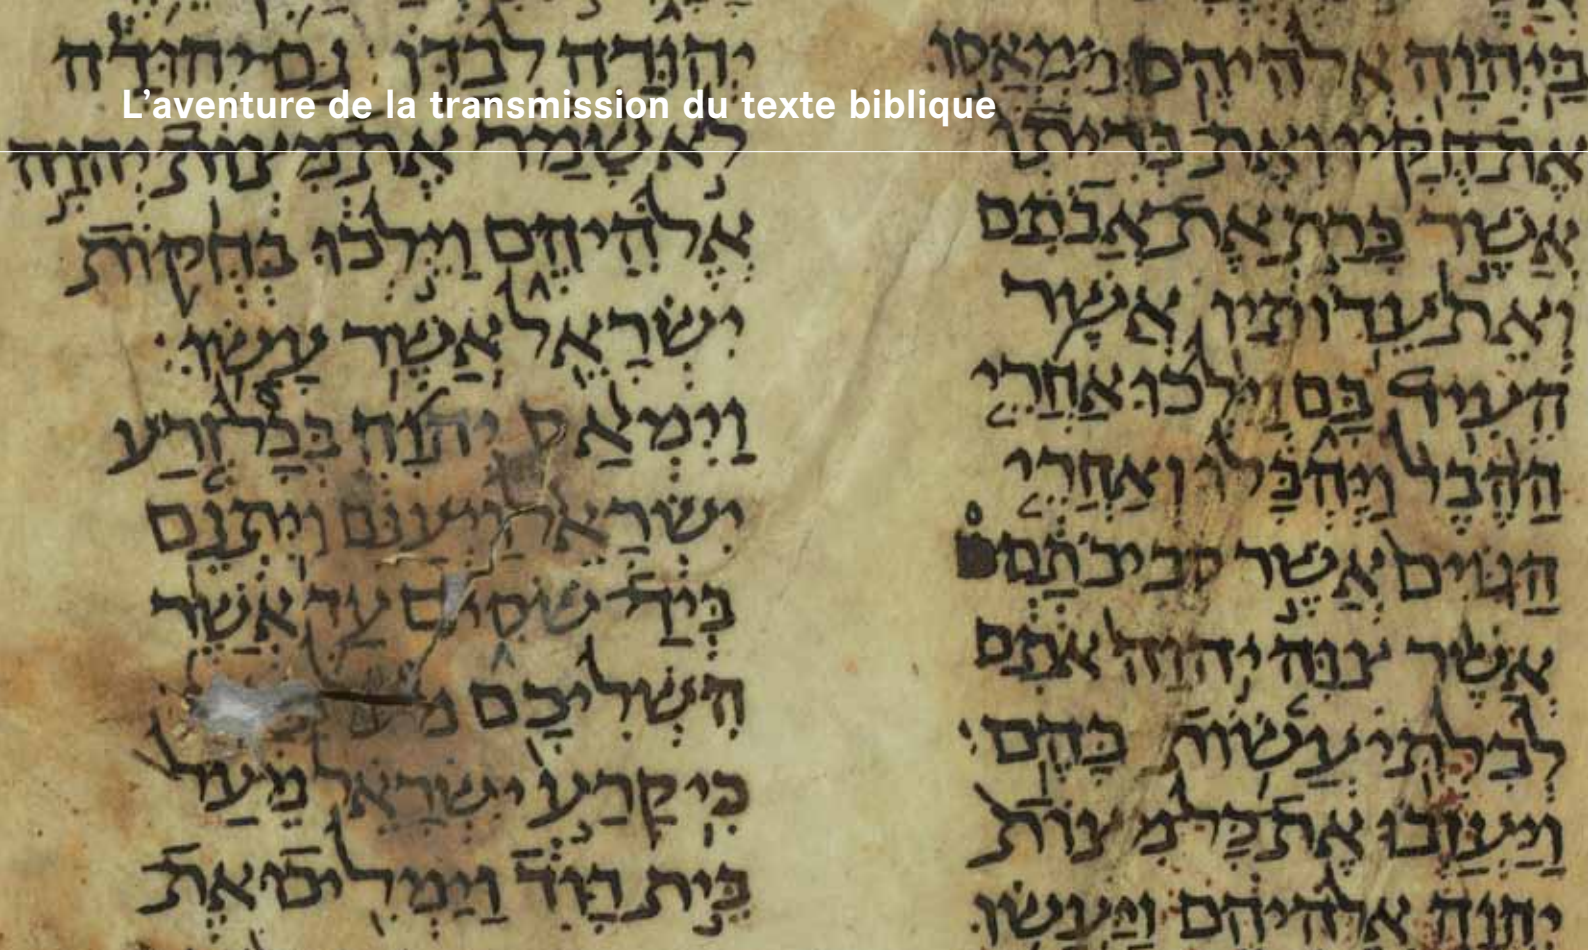 L'aventure de la transmission du texte biblique
בַּיהוָה אֱלֹהֵיהֶם וַיִּמְאֲסוּ
אֶת־חֻקָּיו וְאֶת־בְּרִיתוֹ
אֲשֶׁר כָּרַת אֶת־אֲבֹתָם
וְאֵת עֵדְוֹתָיו אֲשֶׁר
הֵעִיד בָּם וַיֵּלְכוּ אַחֲרֵי
הַהֶבֶל וַיֶּהְבָּלוּ וְאַחֲרֵי
הַגּוֹיִם אֲשֶׁר סְבִיבֹתָם
אֲשֶׁר צִוָּה יְהוָה אֹתָם
לְבִלְתִּי עֲשׂוֹת כָּהֶם׃
וַיַּעַזְבוּ אֶת־כָּל־מִצְוֹת
יְהוָה אֱלֹהֵיהֶם וַיַּעֲשׂוּ
יְהוּדָה לְבַדּוֹ׃ גַּם־יְהוּדָה
לֹא שָׁמַר אֶת־מִצְוֹת יְהוָה
אֱלֹהֵיהֶם וַיֵּלְכוּ בְּחֻקּוֹת
יִשְׂרָאֵל אֲשֶׁר עָשׂוּ׃
וַיִּמְאַס יְהוָה בְּכָל־זֶרַע
יִשְׂרָאֵל וַיְעַנֵּם וַיִּתְּנֵם
בְּיַד־שֹׁסִים עַד אֲשֶׁר
הִשְׁלִיכָם
כִּי־קָרַע יִשְׂרָאֵל מֵעַל
בֵּית דָּוִד וַיַּמְלִיכוּ אֶת־